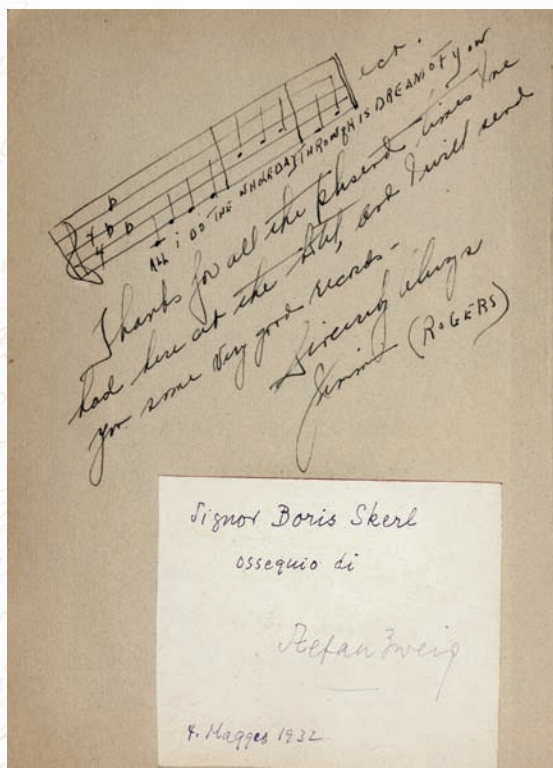 ect.
ALL I DO THE WHOLE DAY THROUGH IS DREAM OF YOU
Thanks for all the plesend times I've
had here at the and I will send
you some very good records -
Sincerely always
Jimmy (ROGERS)
Signor Boris Skerl
ossequio di
Stefan Zweig
4. Maggio 1932